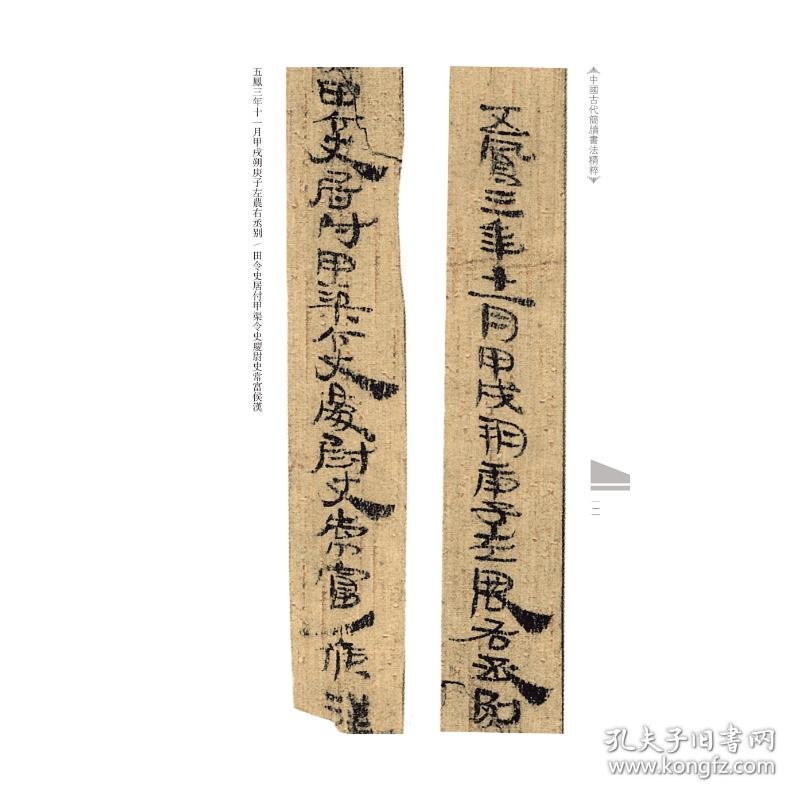 中國古代簡牘書法精粹
一二
五鳳三年十一月甲戌朔庚子左農右丞别
田令史居付甲渠令史慶尉史常富候漢
五鳳三年十一月甲戌朔庚子左農右丞别／田令史居付甲渠令史慶尉史常富侯漢
孔夫子旧書网
www.kongfz.com